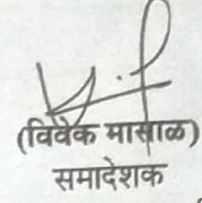 (विवेक मासाळ)
समादेशक